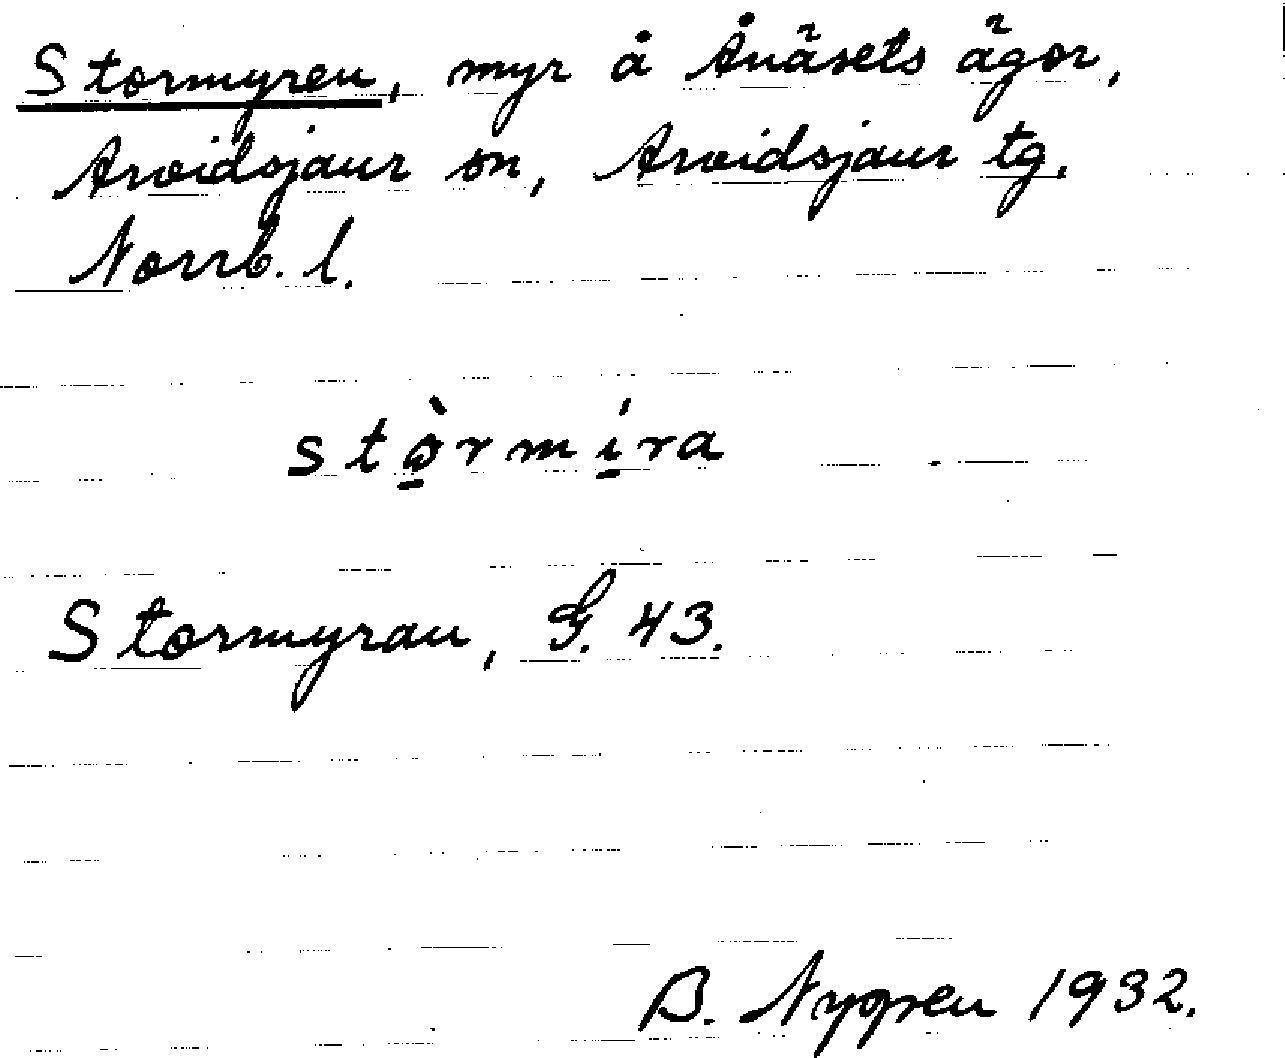 Stormyren, myr å Ånäsets ägor,
Arvidsjaur sn, Arvidsjaur tg.
Norrb. l.
stò̠rmí̠ra
Stormyran, G. 43.
B. Nygren 1932.